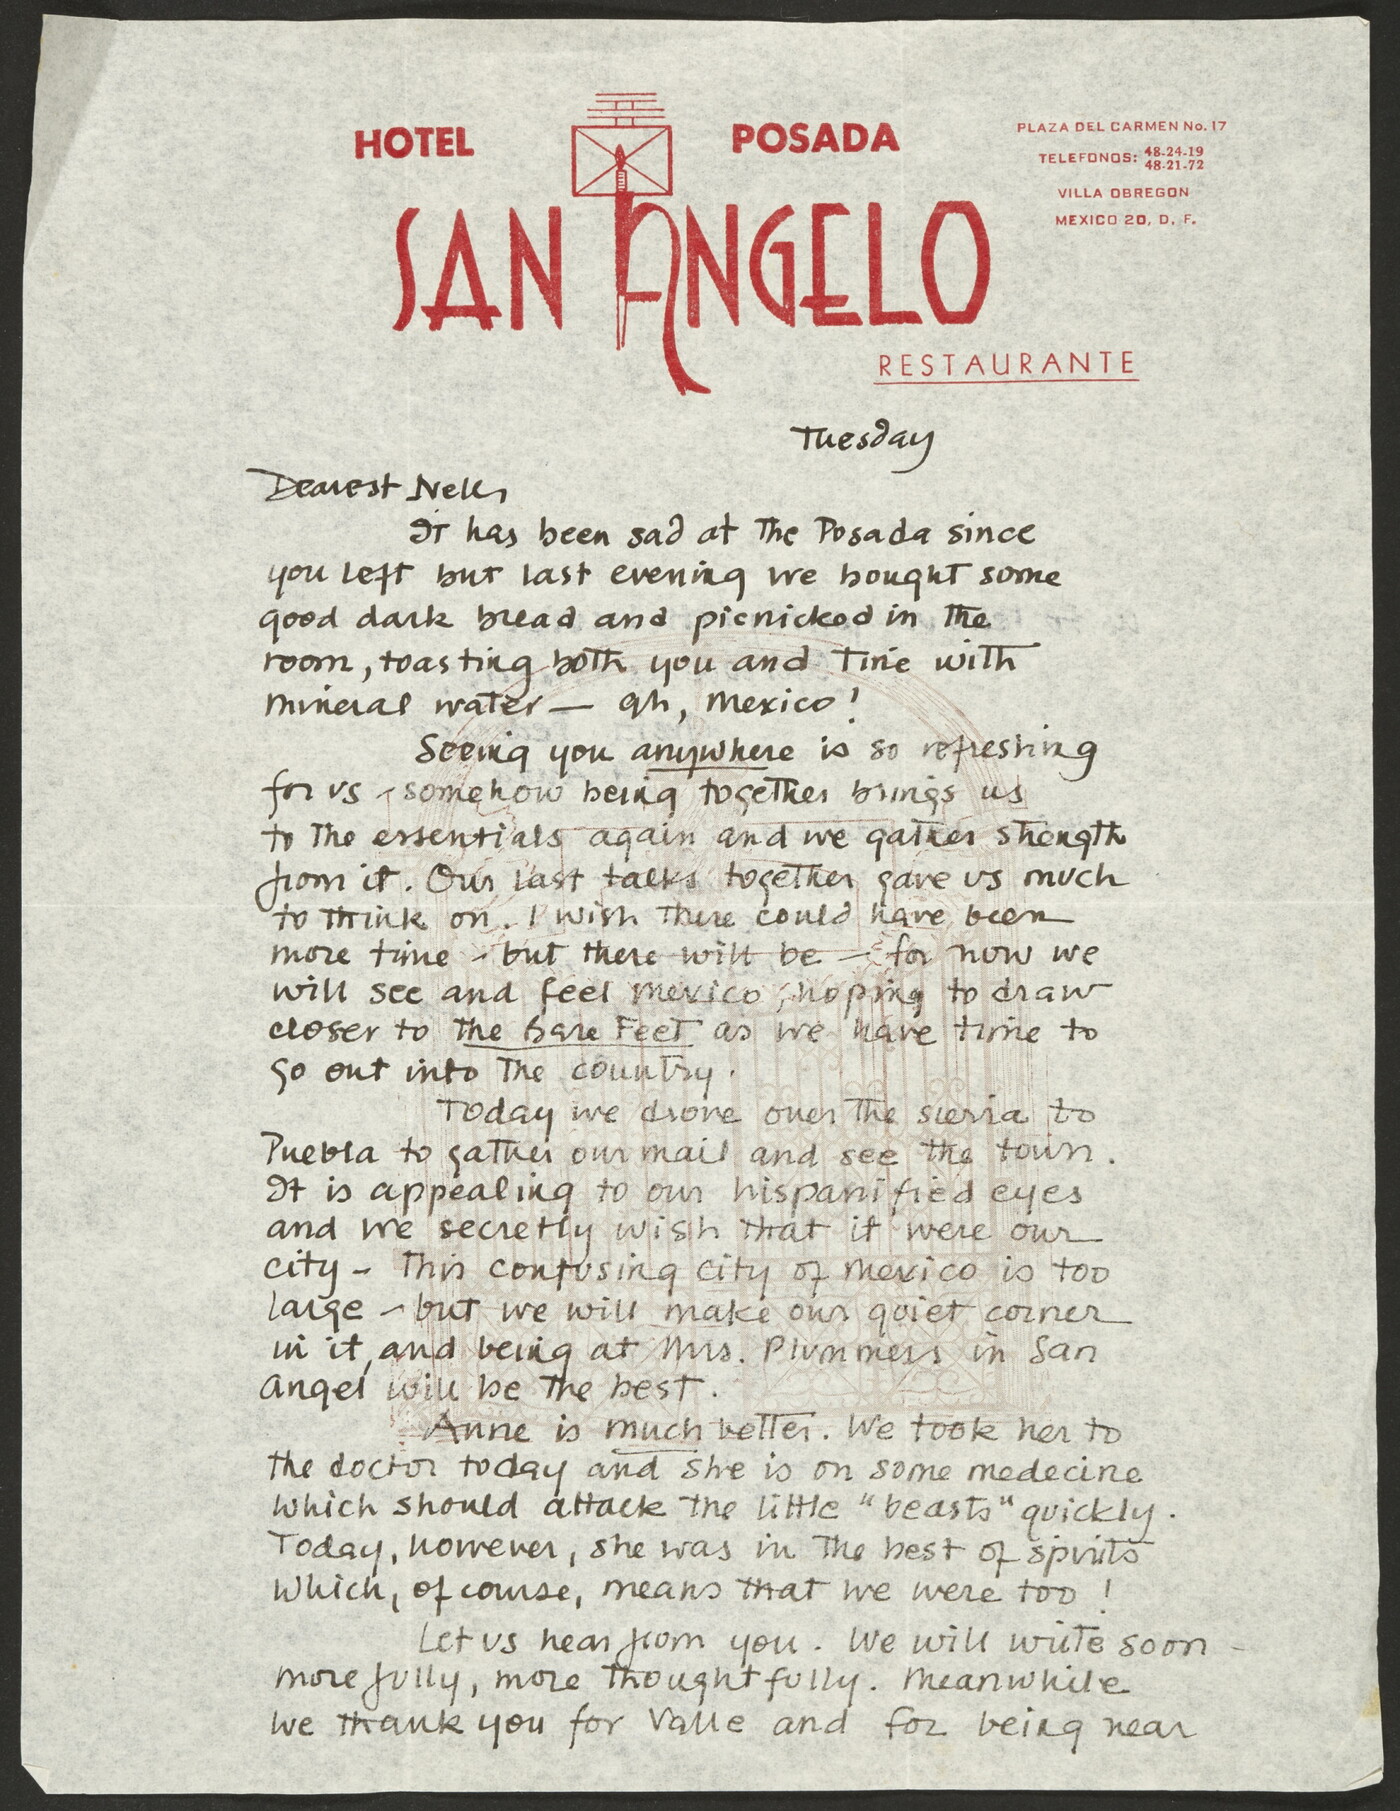 HOTEL POSADA
SAN ANGELO
RESTAURANTE
PLAZA DEL CARMEN No. 17
TELEFONOS: 48-24-19
48-21-72
VILLA OBREGON
MEXICO 20, D. F.
Tuesday
Dearest Nell,
It has been sad at the Posada since
you left but last evening we bought some
good dark bread and picnicked in the
room, toasting both you and Tine with
mineral water — ah, Mexico!
Seeing you anywhere is so refreshing
for us - somehow being together brings us
to the essentials again and we gather strength
from it. Our last talks together gave us much
to think on. I wish there could have been
more time - but there will be — for now we
will see and feel Mexico, hoping to draw
closer to the Bare Feet as we have time to
go out into the country.
Today we drove over the sierra to
Puebla to gather our mail and see the town.
It is appealing to our hispanified eyes
and we secretly wish that it were our
city - This confusing city of Mexico is too
large - but we will make our quiet corner
in it, and being at Mrs. Plummers in San
Angel will be the best.
Anne is much better. We took her to
the doctor today and she is on some medecine
which should attack the little "beasts" quickly.
Today, however, she was in the best of spirits
which, of course, means that we were too!
Let us hear from you. We will write soon -
more fully, more thoughtfully. Meanwhile
we thank you for Valle and for being near